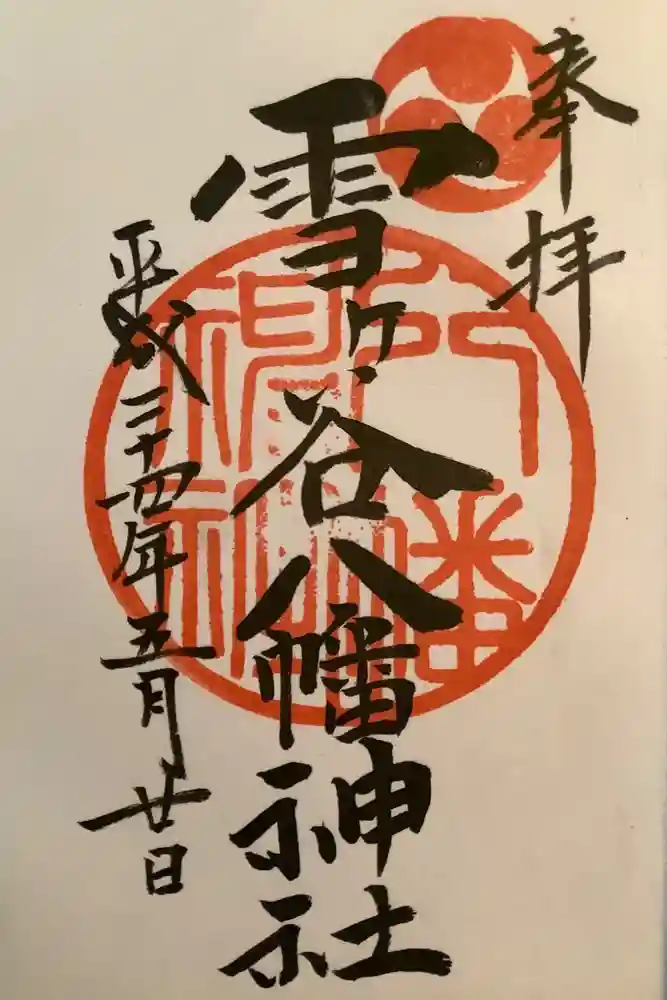 奉拝
雪ヶ谷八幡神社
平成二十四年五月廿日